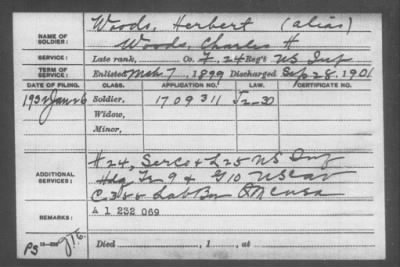 Woods, Herbert (alias)
NAME OF SOLDIER: Woods, Charles H
SERVICE: Late rank, Co. F. 24 Reg't US Inf
TERM OF SERVICE: Enlisted Mch 7, 1899 Discharged Sep 28, 1901
DATE OF FILING. CLASS. APPLICATION NO. LAW. CERTIFICATE NO.
1932 Jan 26 Soldier. 1709311
Widow,
Minor,
H 24, Serco & L 25 US Inf
ADDITIONAL SERVICES: Hdq Tr 9 & G 10 US Cav
C 388 Lab Bn QMC USA
REMARKS: A 1 232 069
Died , 1 , at